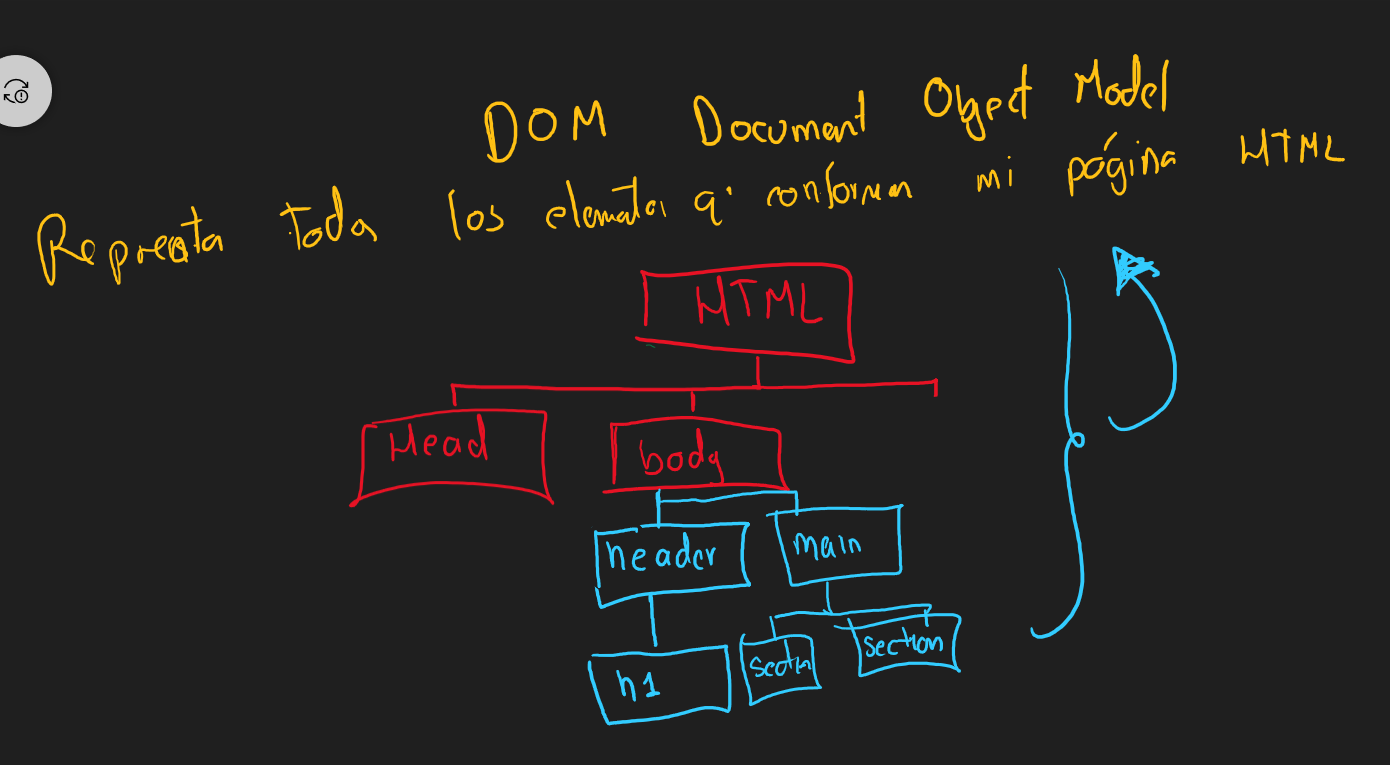 DOM Document Object Model
Reprenta toda los elemata q' conforman mi página HTML
HTML
Head body
header main
h1 section section